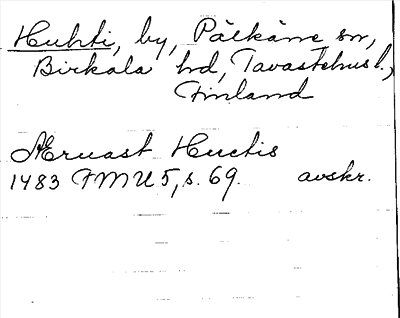 Huhti, by, Pälkäne sn,
Birkala hd, Tavastehus l.,
Finland
Ærnast Huctis
1483 FMU 5, s. 69. avskr.